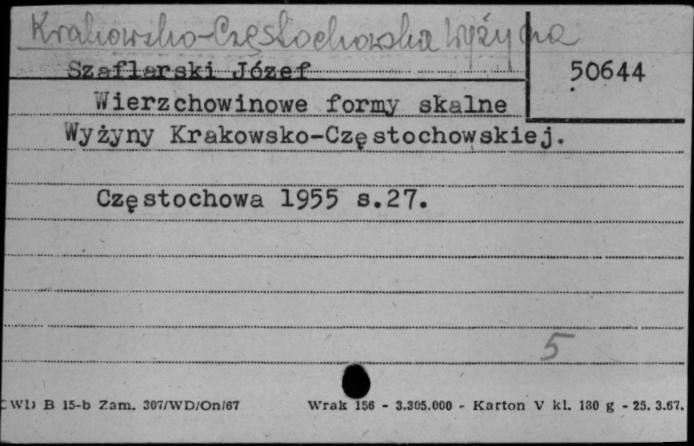 Krakowsko-Częstochowska Wyżyna
Szaflarski Józef
50644
Wierzchowinowe formy skalne
Wyżyny Krakowsko-Częstochowskiej.
Częstochowa 1955 s.27.
5
CWD B 15-b Zam. 307/WD/On/67 Wrak 156 - 3.305.000 - Karton V kl. 180 g - 25. 3.67.